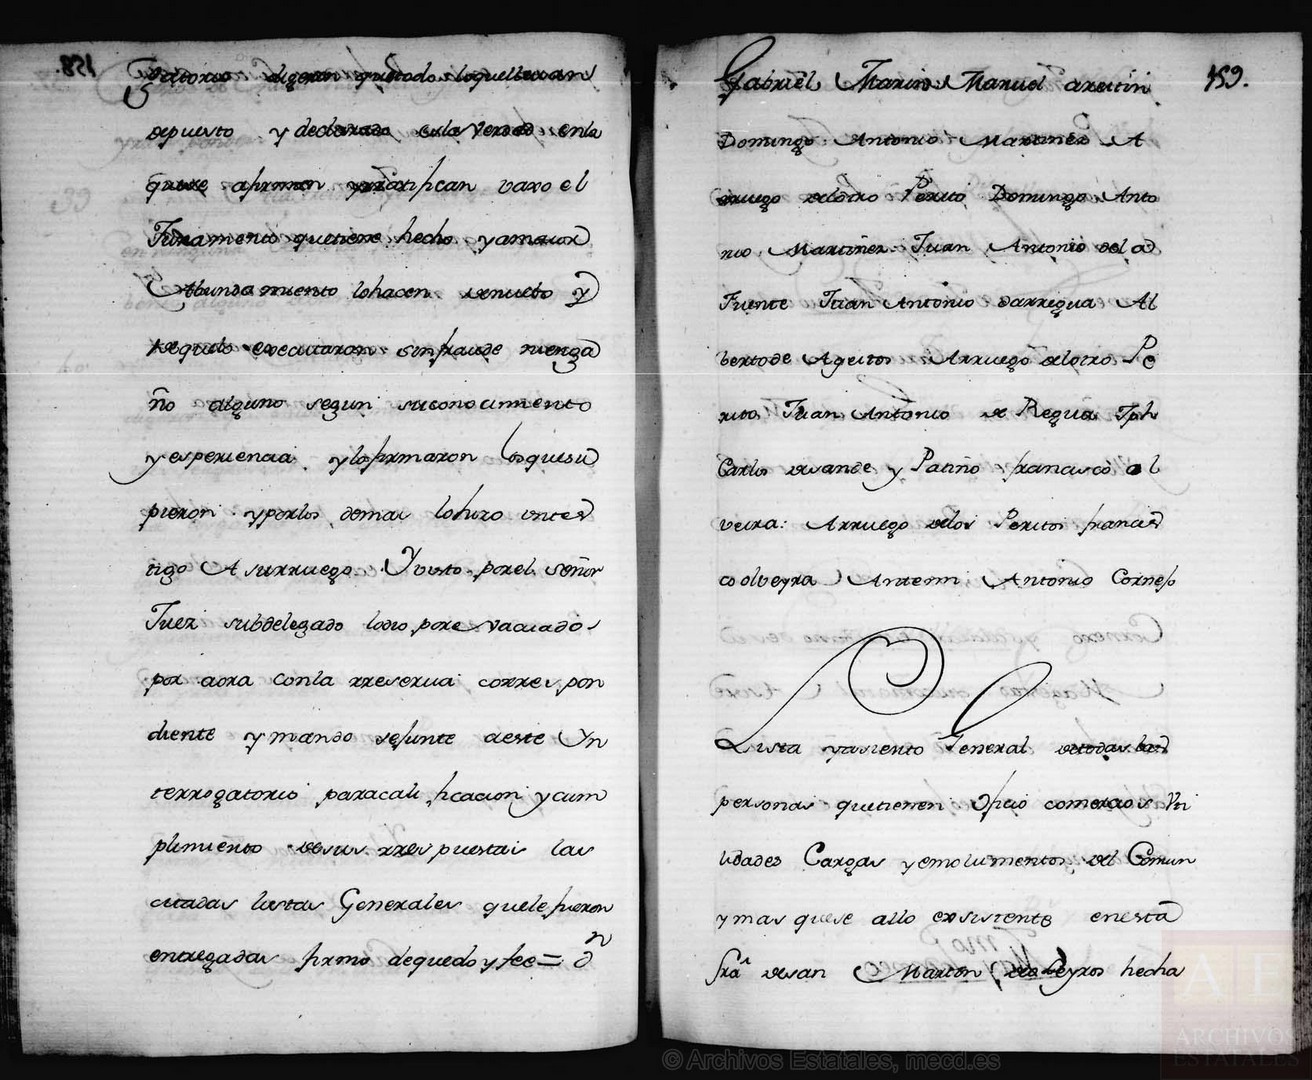 158.
gatorio digeron quetodo loquellevan
depuesto y declarado esla verdad enla
quese afirman yrratifican vaxo el
Juramento quetiene hecho yamaior
Abundamiento lohacen denuebo y
dequelo executaron sinfraude niengã
ño alguno segun suconocimiento
y esperiencia ylofirmaron losquesu
pieron yporlos demas lohizo untes
tigo A surruego Yvisto porel señor
Juez subdelegado lodio, pore vaciado
por aora conla rreserva corres pon
diente ymando sejunte aeste Yn
terrogatorio paracali ficacion ycum
plimiento desus rres puestas las
citadas listas Generales quele fueron
entregadas firmo dequedoyfee = Dn
159.
Gabriel Marino Manuel
Domingo Antonio Martinez A
rruego delotro Perito Domingo Anto
nio Martinez Juan Antonio dela
Fuente Juan Antonio darregua Al
bertode Ageitos Arruego delotro Pe
rito Juan Antonio de Regua Jph
Carlos desande y Patiño francisco ol
veira: Arruego delos Peritos francis
co olveyra Antemi Antonio Cornejo
Lista yasiento General detodas las
personas quetienen oficio comercios Uti
lidades Cargas yemolumentos del Comun
ymas quese allo exsistente enesta
fra desan Martin deoleyros hecha
© Archivos Estatales, mecd.es
AE
ARCHIVOS
ESTATALES